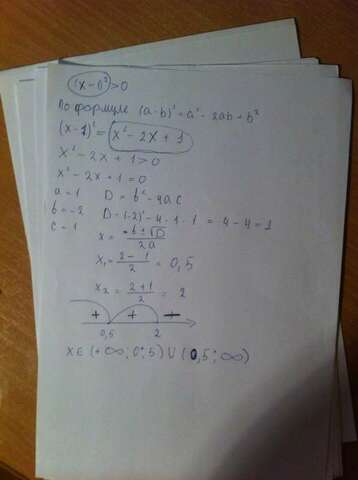 (x-1)²>0
По формуле (a-b)²=a²-2ab+b²
(x-1)²=x²-2x+1
x²-2x+1>0
x²-2x+1=0
a=1 D=b²-4ac
b=-2 D=(-2)²-4·1·1=4-4=1
c=1 x=\frac{-b±√D}{2a}
x₁=\frac{2-1}{2}=0,5
x₂=\frac{2+1}{2}=2
+ + +
0,5 2
x∈(+∞;0,5)∪(0,5;∞)